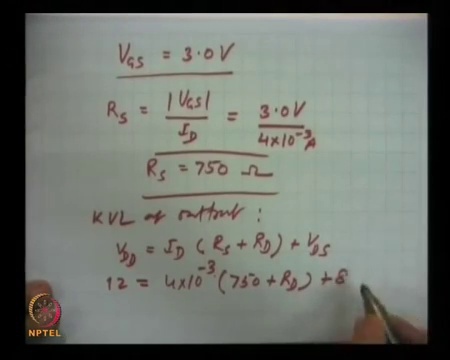 V_GS = 3.0V
R_S = |V_GS| / I_D = 3.0V / 4×10^-3 A
R_S = 750 Ω
KVL at output :
V_DD = I_D (R_S + R_D) + V_DS
12 = 4×10^-3 (750 + R_D) + 8
NPTEL